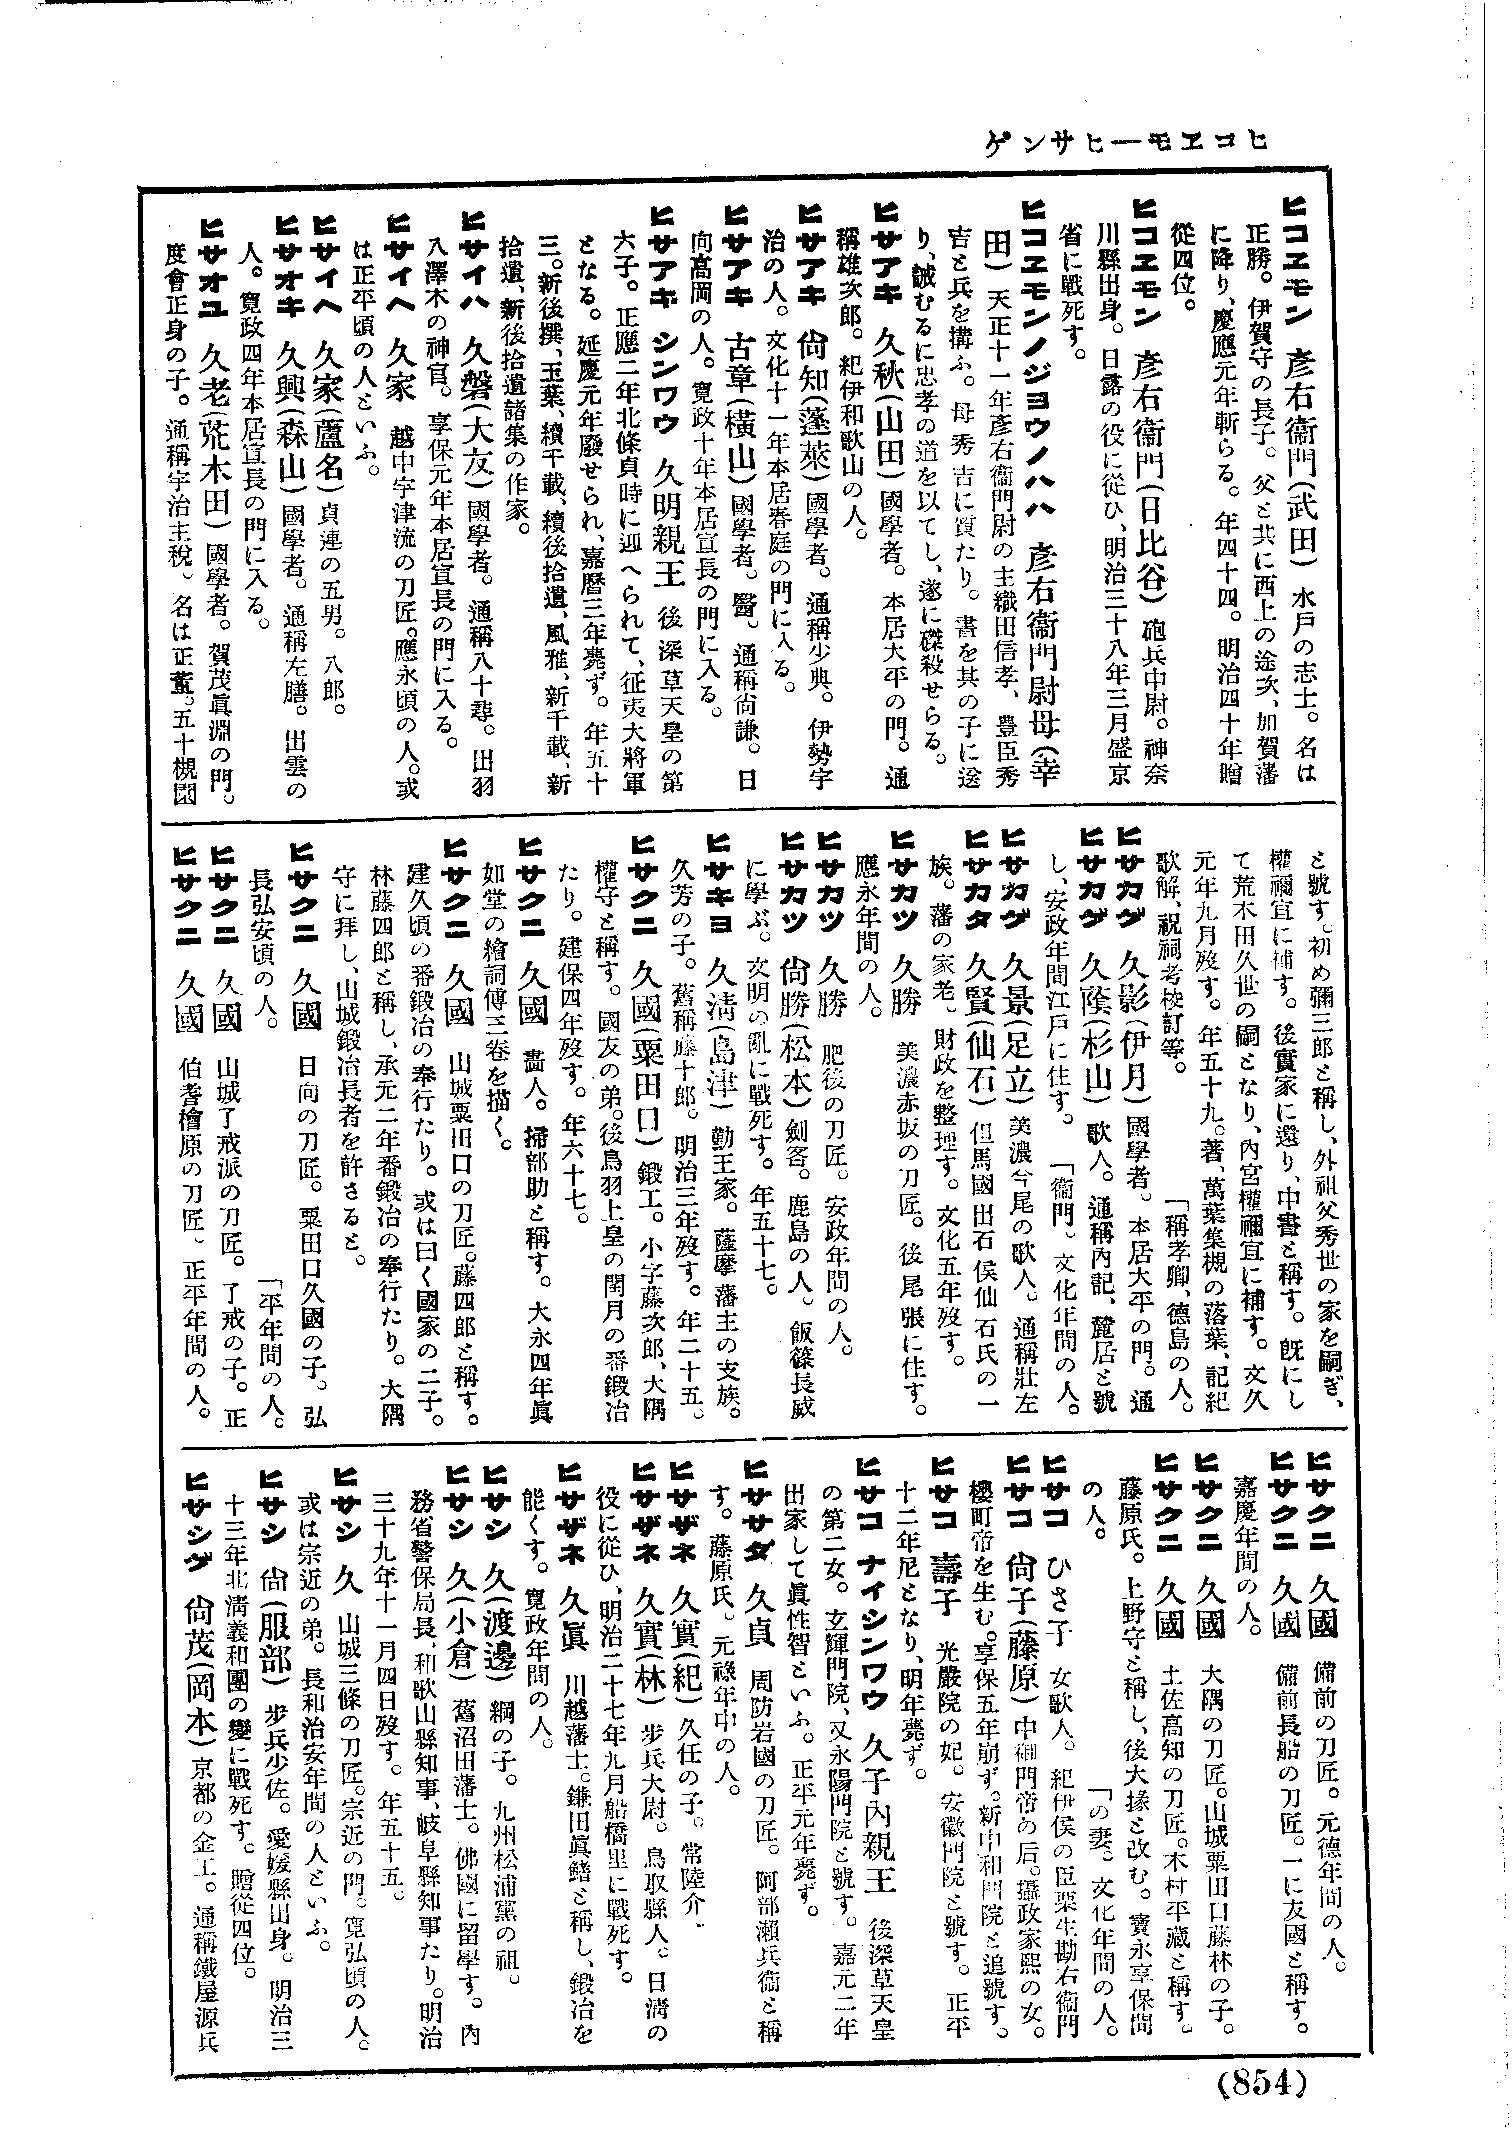 ヒコヱモ―ヒサシゲ
ヒコヱモン 彦右衞門(武田) 水戸の志士。名は
正勝。伊賀守の長子。父と共に西上の途次、加賀藩
に降り、慶應元年斬らる。年四十四。明治四十年贈
從四位。
ヒコヱモン 彦右衞門(日比谷) 砲兵中尉。神奈
川縣出身。日露の役に從ひ、明治三十八年三月盛京
省に戰死す。
ヒコヱモンノジヨウノハハ 彦右衞門尉母(幸
田) 天正十一年彦右衞門尉の主織田信孝、豊臣秀
吉と兵を搆ふ。母秀吉に質たり。書を其の子に送
り、誡むるに忠孝の道を以てし、遂に磔殺せらる。
ヒサアキ 久秋(山田) 國學者。本居大平の門。通
稱雄次郎。紀伊和歌山の人。
ヒサアキ 尙知(蓬萊) 國學者。通稱少典。伊勢宇
治の人。文化十一年本居春庭の門に入る。
ヒサアキ 古章(横山) 國學者。醫。通稱尙謙。日
向高岡の人。寛政十年本居宣長の門に入る。
ヒサアキ シンワウ 久明親王 後深草天皇の第
六子。正應二年北條貞時に迎へられて、征夷大將軍
となる。延慶元年廢せられ、嘉暦三年薨ず。年五十
三。新後撰、玉葉、續千載、續後拾遺、風雅、新千載、新
拾遺、新後拾遺諸集の作家。
ヒサイハ 久磐(大友) 國學者。通稱八十尋。出羽
八澤木の神官。享保元年本居宣長の門に入る。
ヒサイヘ 久家 越中宇津流の刀匠。應永頃の人。或
は正平頃の人といふ。
ヒサイヘ 久家(蘆名) 貞連の五男。八郎。
ヒサオキ 久興(森山) 國學者。通稱左膳。出雲の
人。寛政四年本居宣長の門に入る。
ヒサオユ 久老(荒木田) 國學者。賀茂眞淵の門。
度會正身の子。通稱宇治主税、名は正董。五十槻園
と號す。初め彌三郎と稱し、外祖父秀世の家を嗣ぎ、
權禰宜に補す。後實家に還り、中書と稱す。既にし
て荒木田久世の嗣となり、内宮權禰宜に補す。文久
元年九月歿す。年五十九。著、萬葉集槻の落葉、記紀
歌解、祝祠考校訂等。 「稱孝卿、德島の人。
ヒサカゲ 久影(伊月) 國學者。本居大平の門。通
ヒサカゲ 久蔭(杉山) 歌人。通稱內記、麓居と號
し、安政年間江戸に住す。 「衞門。文化年間の人。
ヒサカゲ 久景(足立) 美濃今尾の歌人。通稱壯左
ヒサカタ 久賢(仙石) 但馬國出石侯仙石氏の一
族。藩の家老。財政を整理す。文化五年歿す。
ヒサカツ 久勝 美濃赤坂の刀匠。後尾張に住す。
應永年間の人。
ヒサカツ 久勝 肥後の刀匠。安政年間の人。
ヒサカツ 尙勝(松本) 劍客。鹿島の人。飯篠長威
に學ぶ。文明の亂に戰死す。年五十七。
ヒサキヨ 久淸(島津) 勤王家。薩摩藩主の支族。
久芳の子。舊稱藤十郎。明治三年歿す。年二十五。
ヒサクニ 久國(粟田口) 鍛工。小字藤次郎、大隅
權守と稱す。國友の弟。後鳥羽上皇の閏月の番鍛冶
たり。建保四年歿す。年六十七。
ヒサクニ 久國 畵人。掃部助と稱す。大永四年眞
如堂の繪詞傳三卷を描く。
ヒサクニ 久國 山城粟田口の刀匠。藤四郎と稱す。
建久頃の番鍛冶の奉行たり。或は曰く國家の二子。
林藤四郎と稱し、承元二年番鍛冶の奉行たり。大隅
守に拜し、山城鍛冶長者を許さると。
ヒサクニ 久國 日向の刀匠。粟田口久國の子。弘
長弘安頃の人。 「平年間の人。
ヒサクニ 久國 山城了戒派の刀匠。了戒の子。正
ヒサクニ 久國 伯耆檜原の刀匠。正平年間の人。
ヒサクニ 久國 備前の刀匠。元德年間の人。
ヒサクニ 久國 備前長船の刀匠。一に友國と稱す。
嘉慶年間の人。
ヒサクニ 久國 大隅の刀匠。山城粟田口藤林の子。
ヒサクニ 久國 土佐高知の刀匠。木村平藏と稱す。
藤原氏。上野守と稱し、後大掾と改む。寶永享保間
の人。 「の妻。文化年間の人。
ヒサコ ひさ子 女歌人。紀伊侯の臣栗生勘右衞門
ヒサコ 尙子(藤原) 中御門帝の后。攝政家熙の女。
櫻町帝を生む。享保五年崩ず。新中和門院と追號す。
ヒサコ 壽子 光嚴院の妃。安徽門院と號す。正平
十二年尼となり、明年薨ず。
ヒサコ ナイシンワウ 久子內親王 後深草天皇
の第二女。玄輝門院、又永陽門院と號す。嘉元二年
出家して眞性智といふ。正平元年薨ず。
ヒササダ 久貞 周防岩國の刀匠。阿部瀨兵衞と稱
す。藤原氏。元祿年中の人。
ヒサザネ 久實(紀) 久任の子。常陸介。
ヒサザネ 久實(林) 步兵大尉。鳥取縣人。日淸の
役に從ひ、明治二十七年九月船橋里に戰死す。
ヒサザネ 久眞 川越藩士。鎌田眞鰭と稱し、鍛冶を
能くす。寛政年間の人。
ヒサシ 久(渡邊) 綱の子。九州松浦黨の祖。
ヒサシ 久(小倉) 舊沼田藩士。佛國に留學す。內
務省警保局長、和歌山縣知事、岐阜縣知事たり。明治
三十九年十一月四日歿す。年五十五。
ヒサシ 久 山城三條の刀匠。宗近の門。寛弘頃の人。
或は宗近の弟。長和治安年間の人といふ。
ヒサシ 尙(服部) 步兵少佐。愛媛縣出身。明治三
十三年北淸義和團の變に戰死す。贈從四位。
ヒサシゲ 尙茂(岡本) 京都の金工。通稱鐵屋源兵
(854)